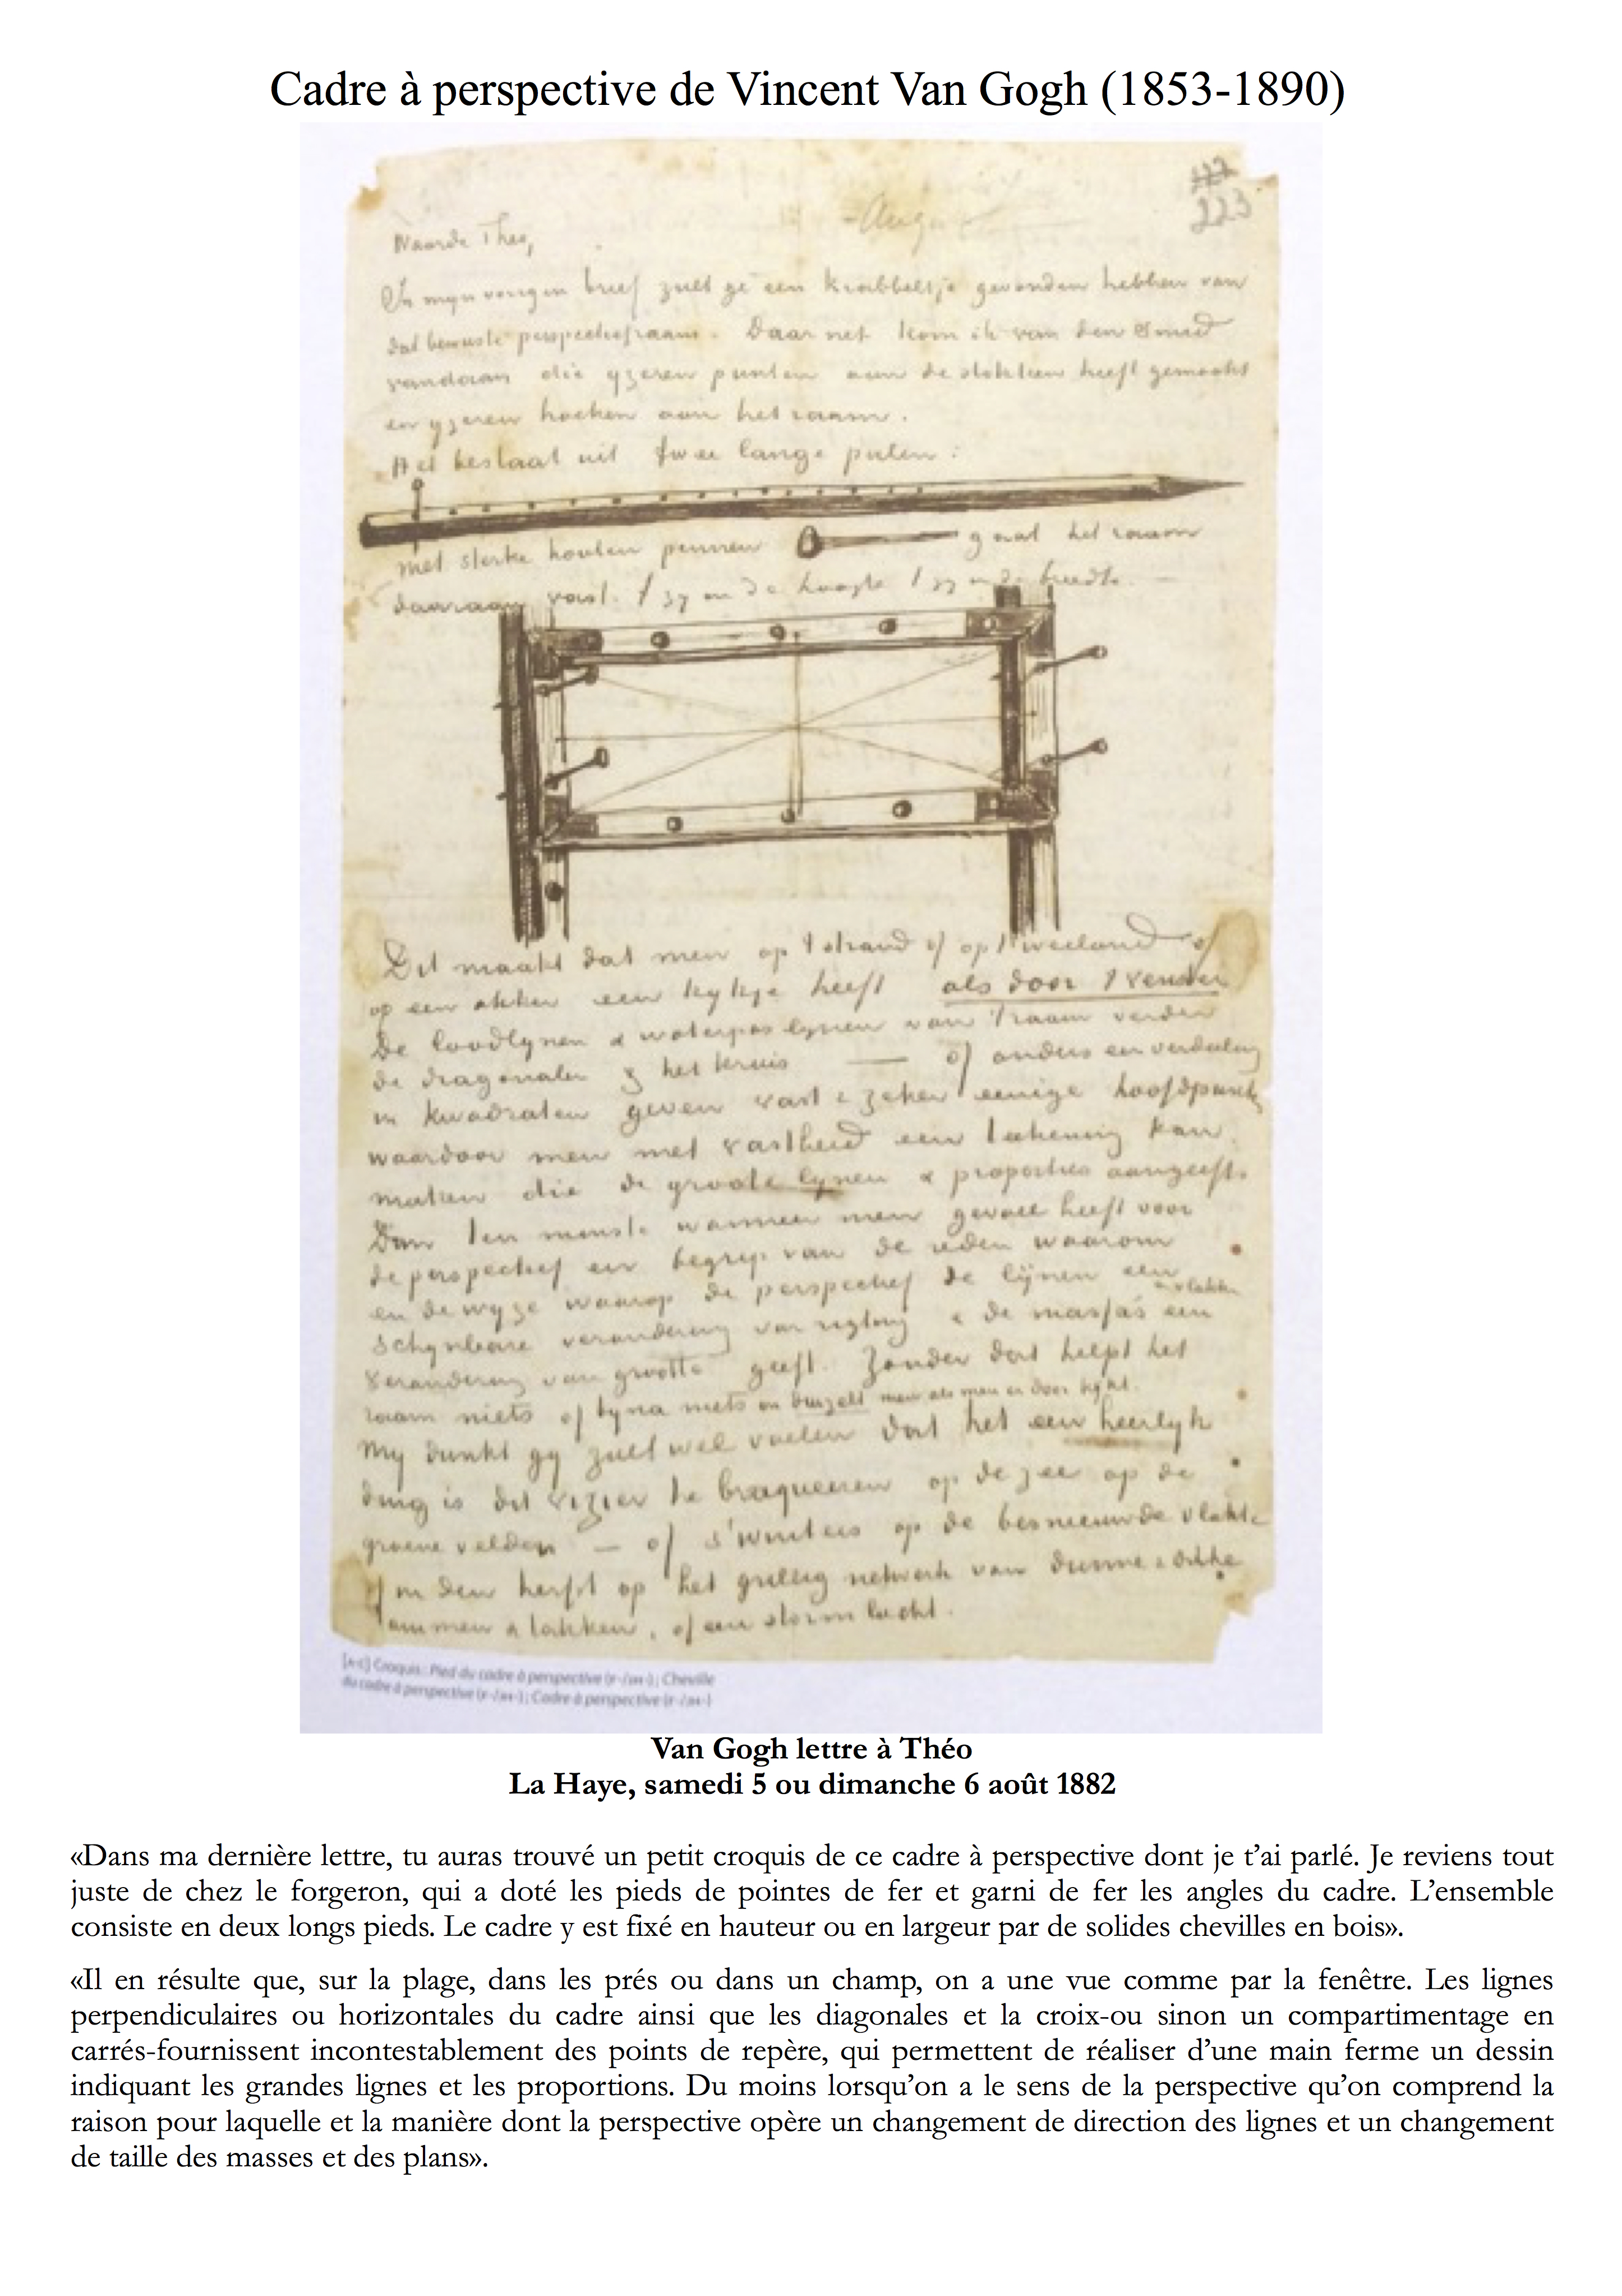 Cadre à perspective de Vincent Van Gogh (1853-1890)
223
Waarde Theo,
In mijn vorigen brief zult ge een krabbeltje gevonden hebben van
dat bewuste perspectiefraam. Daar net kom ik van den smid
vandaan die yzeren punten aan de stokken heeft gemaakt
en yzeren hoeken aan het raam.
Het bestaat uit twee lange palen:
met sterke houten pennen gaat het raam
daaraan vast. 't zy in de hoogte 't zy in de breedte.
Dit maakt dat men op 't strand of op 't weiland of
op een akker een kykje heeft als door 't venster
De loodlynen & waterpas lynen van 't raam verder
de diagonalen & het kruis — of anders een verdeling
in kwadraten geven vast & zeker eenige hoofdpunten
waardoor men met vastheid een teekening kan
maken die de groote lynen & proporties aangeeft.
Dan ten minste wanneer men gevoel heeft voor
de perspectief en begrip van de reden waarom
en de wyze waarop de perspectief de lijnen een
schynbare verandering van rigting & de massa's en vlakken een
verandering van grootte geeft. Zonder dat helpt het
raam niets of byna niets en duizelt men als men er door kykt.
My dunkt gy zult wel voelen dat het een heerlyk
ding is dit vizier te braqueeren op de zee op de
groene velden — of s'winters op de besneeuwde vlakte
of in den herfst op het grillig netwerk van dunne & dikke
stammen & takken, of een stormlucht.
[A-C] Croquis: Pied du cadre à perspective (r-/av-); Cheville
du cadre à perspective (r-/av-); Cadre à perspective (r-/av-)
Van Gogh lettre à Théo
La Haye, samedi 5 ou dimanche 6 août 1882
«Dans ma dernière lettre, tu auras trouvé un petit croquis de ce cadre à perspective dont je t'ai parlé. Je reviens tout
juste de chez le forgeron, qui a doté les pieds de pointes de fer et garni de fer les angles du cadre. L'ensemble
consiste en deux longs pieds. Le cadre y est fixé en hauteur ou en largeur par de solides chevilles en bois».
«Il en résulte que, sur la plage, dans les prés ou dans un champ, on a une vue comme par la fenêtre. Les lignes
perpendiculaires ou horizontales du cadre ainsi que les diagonales et la croix-ou sinon un compartimentage en
carrés-fournissent incontestablement des points de repère, qui permettent de réaliser d'une main ferme un dessin
indiquant les grandes lignes et les proportions. Du moins lorsqu'on a le sens de la perspective qu'on comprend la
raison pour laquelle et la manière dont la perspective opère un changement de direction des lignes et un changement
de taille des masses et des plans».